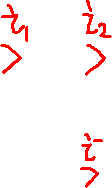 i₁ i₂
> >
i
>